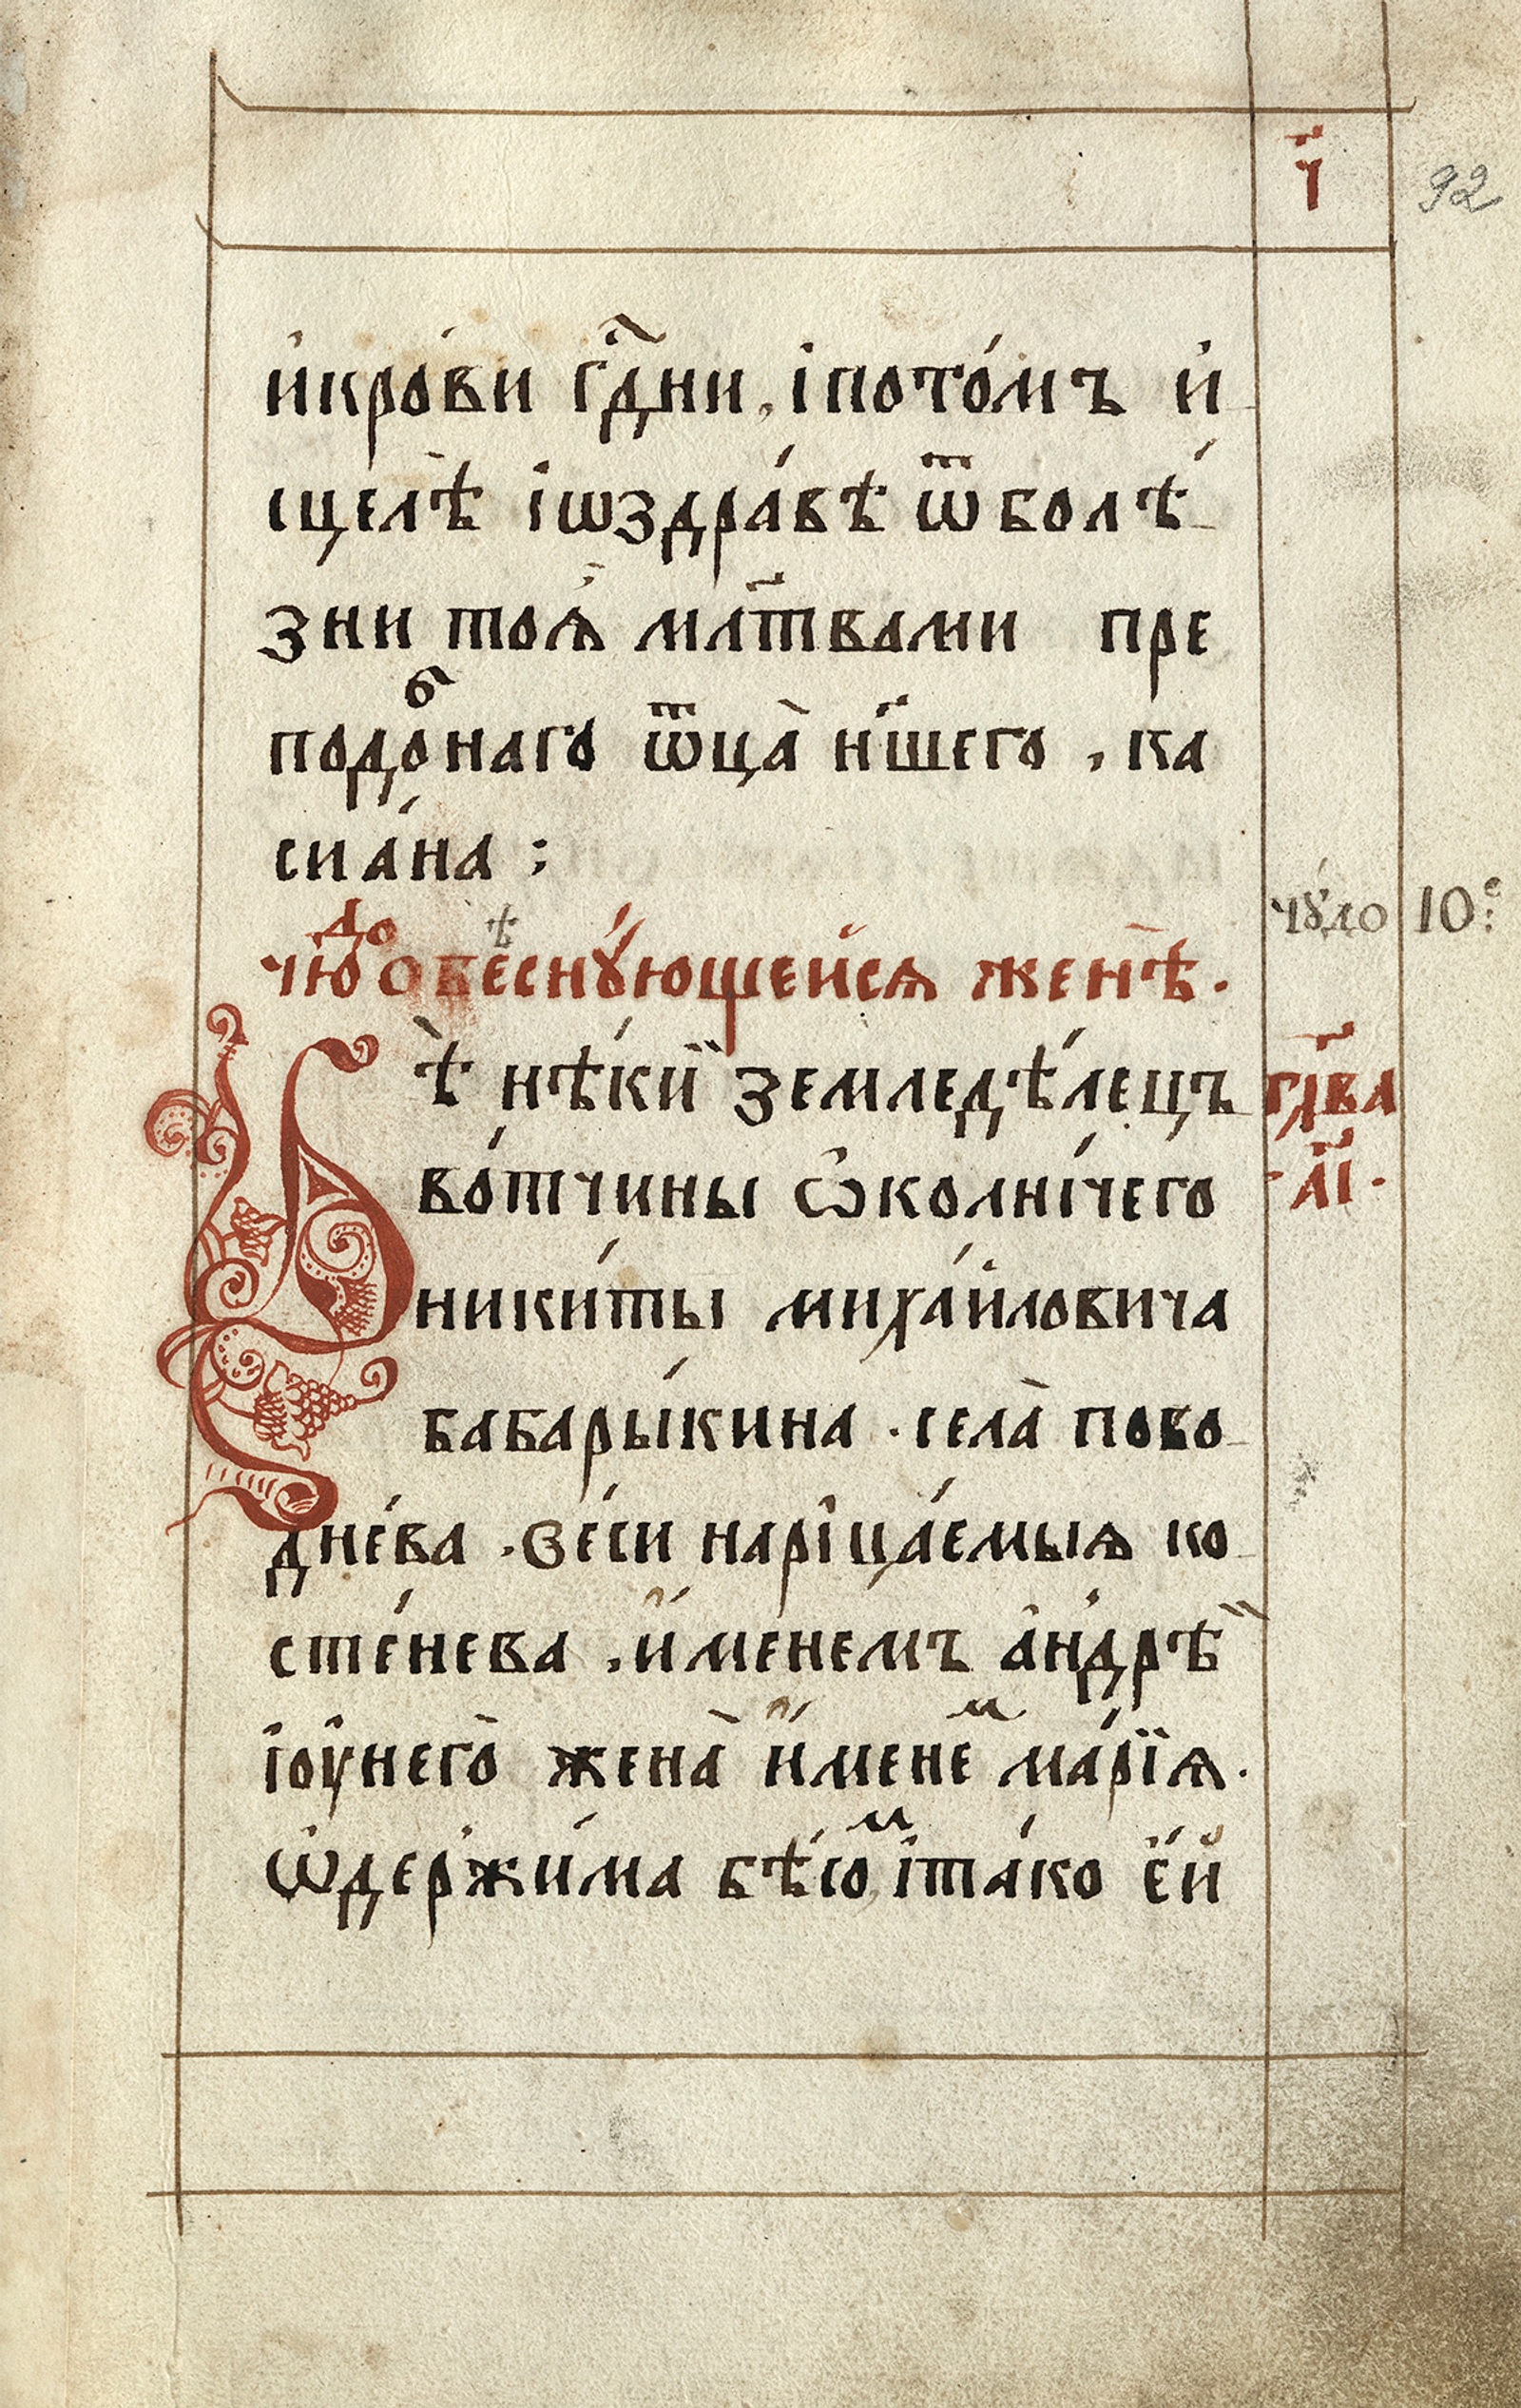 і҃
92
и҆кро́ви гдⷭ҇ни, і потóмъ и҆
сцелѣ̀ і ѡздра́вѣ ѿ болѣ́
зни тоѧ̀ млт҃вами пре
подоⷠнаго ѿца̀ нш҃его , ка
сиа́на :
чюдⷪо бѣсну́ющейсѧ женѣ̀ .
чꙋдо 10е:
Бѣ̀ нѣ́кїи земледѣ́лецъ
гл҃ва
во́тчины ѡ҆колні́чего
· а҃і ·
ники́ты миха́йловича
бабары́кина . села̀ пово
дне́ва . веси нарица́емыѧ ко
сте́нева , и҆менемъ а҆ндрѣ̏
і ѹ҆ него̀ жена̀ и҆́менеⷨ мáрїѧ .
ѡ҆держи́ма бѣ́соⷨ, і та́ко є҆́й